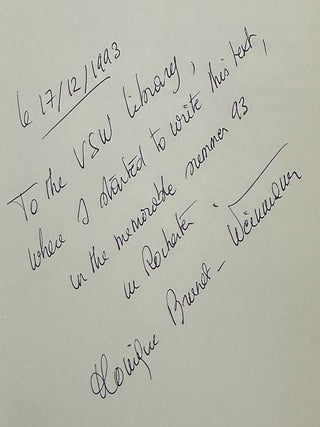 le 17/12/1993
To the VSW library,
where I started to write this text,
in the memorable summer 93
in Rochester.
Monique Brunet-Weinmann